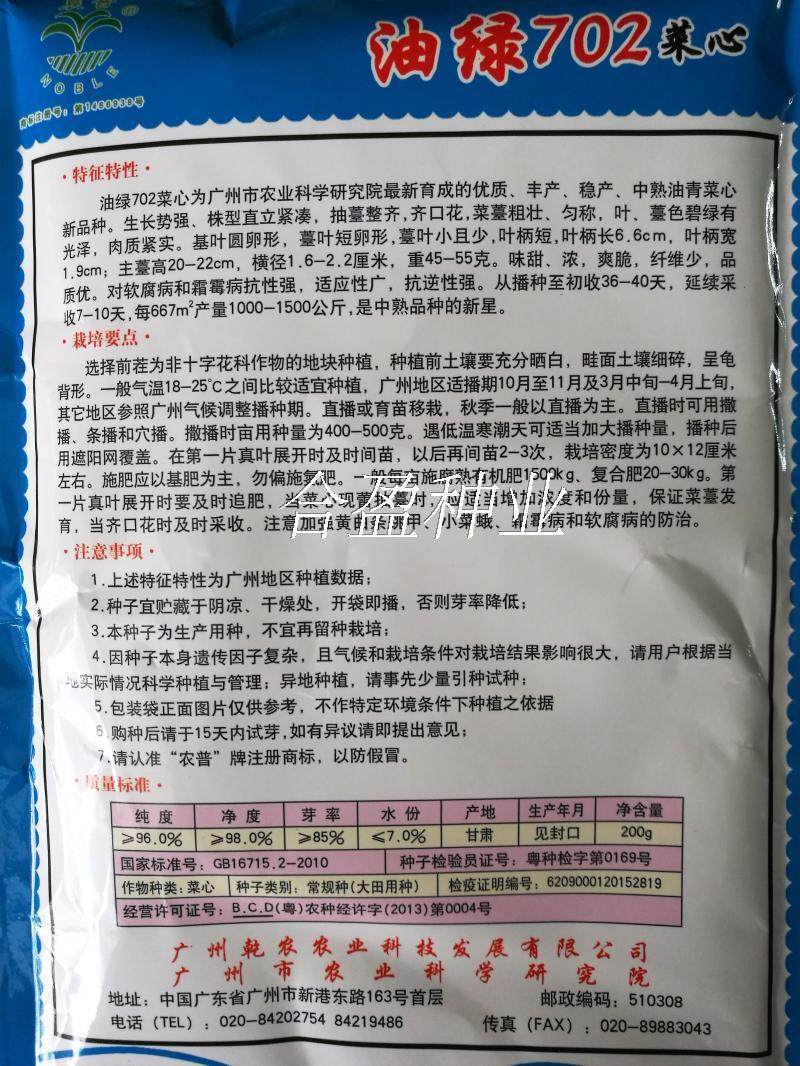 NOBLE
商标注册号：第1466938号
油绿702菜心
·特征特性·
油绿702菜心为广州市农业科学研究院最新育成的优质、丰产、稳产、中熟油青菜心
新品种。生长势强、株型直立紧凑，抽薹整齐,齐口花,菜薹粗壮、匀称，叶、薹色碧绿有
光泽，肉质紧实。基叶圆卵形，薹叶短卵形,薹叶小且少,叶柄短,叶柄长6.6cm，叶柄宽
1.9cm；主薹高20-22cm，横径1.6-2.2厘米，重45-55克。味甜、浓，爽脆，纤维少，品
质优。对软腐病和霜霉病抗性强，适应性广，抗逆性强。从播种至初收36-40天，延续采
收7-10天,每667m²产量1000-1500公斤,是中熟品种的新星。
·栽培要点·
选择前茬为非十字花科作物的地块种植，种植前土壤要充分晒白，畦面土壤细碎，呈龟
背形。一般气温18-25℃之间比较适宜种植，广州地区适播期10月至11月及3月中旬-4月上旬，
其它地区参照广州气候调整播种期。直播或育苗移栽，秋季一般以直播为主。直播时可用撒
播、条播和穴播。撒播时亩用种量为400-500克。遇低温寒潮天可适当加大播种量，播种后
用遮阳网覆盖。在第一片真叶展开时及时间苗，以后再间苗2-3次，栽培密度为10×12厘米
左右。施肥应以基肥为主，勿偏施氮肥。一般每亩施腐熟有机肥1500kg、复合肥20-30kg。第
一片真叶展开时要及时追肥，当菜心现蕾抽薹时，可适当增加浓度和份量，保证菜薹发
育，当齐口花时及时采收。注意加强黄曲条跳甲、小菜蛾、霜霉病和软腐病的防治。
合盈种业
·注意事项·
1.上述特征特性为广州地区种植数据；
2.种子宜贮藏于阴凉、干燥处，开袋即播，否则芽率降低；
3.本种子为生产用种，不宜再留种栽培；
4.因种子本身遗传因子复杂，且气候和栽培条件对栽培结果影响很大，请用户根据当
地实际情况科学种植与管理；异地种植，请事先少量引种试种；
5.包装袋正面图片仅供参考，不作特定环境条件下种植之依据
6.购种后请于15天内试芽,如有异议请即提出意见；
7.请认准“农普”牌注册商标，以防假冒。
·质量标准·
纯度 净度 芽率 水份 产地 生产年月 净含量
≥96.0% ≥98.0% ≥85% ≤7.0% 甘肃 见封口 200g
国家标准号：GB16715.2-2010 种子检验员证号：粤种检字第0169号
作物种类：菜心 种子类别：常规种(大田用种) 检疫证明编号：6209000120152819
经营许可证号：B.C.D(粤)农种经许字(2013)第0004号
广州乾农农业科技发展有限公司
广州市农业科学研究院
地址：中国广东省广州市新港东路163号首层 邮政编码：510308
电话（TEL）：020-84202754 84219486 传真（FAX）：020-89883043